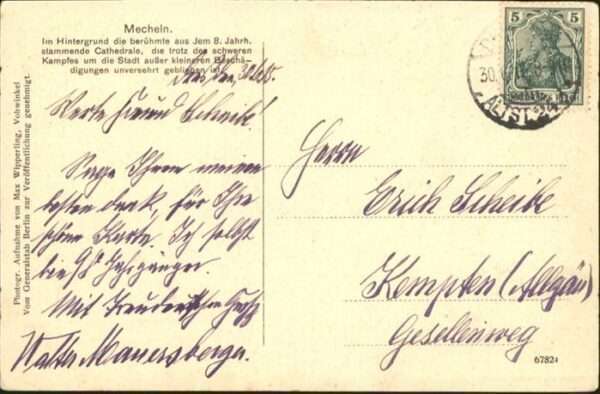 Mecheln.
Im Hintergrund die berühmte aus dem 8. Jahrh.
stammende Cathedrale, die trotz des schweren
Kampfes um die Stadt außer kleineren Beschä-
digungen unversehrt geblieben ist.
Photogr. Aufnahme von Max Wipperling, Vohwinkel
Vom Generalstab Berlin zur Veröffentlichung genehmigt.
5 5
30.
ALTST. 24
den 30.
Werte Freund Scheibe!
Sage Ihnen meinen
besten Dank, für Ihre
schöne Karte. Ich selbst
bin 98 Jahrgänger.
Mit Freundlichen Gruß
Walter Mauersberger.
Herrn
Erich Scheibe
Kempten (Allgäu)
Gesellenweg
67821